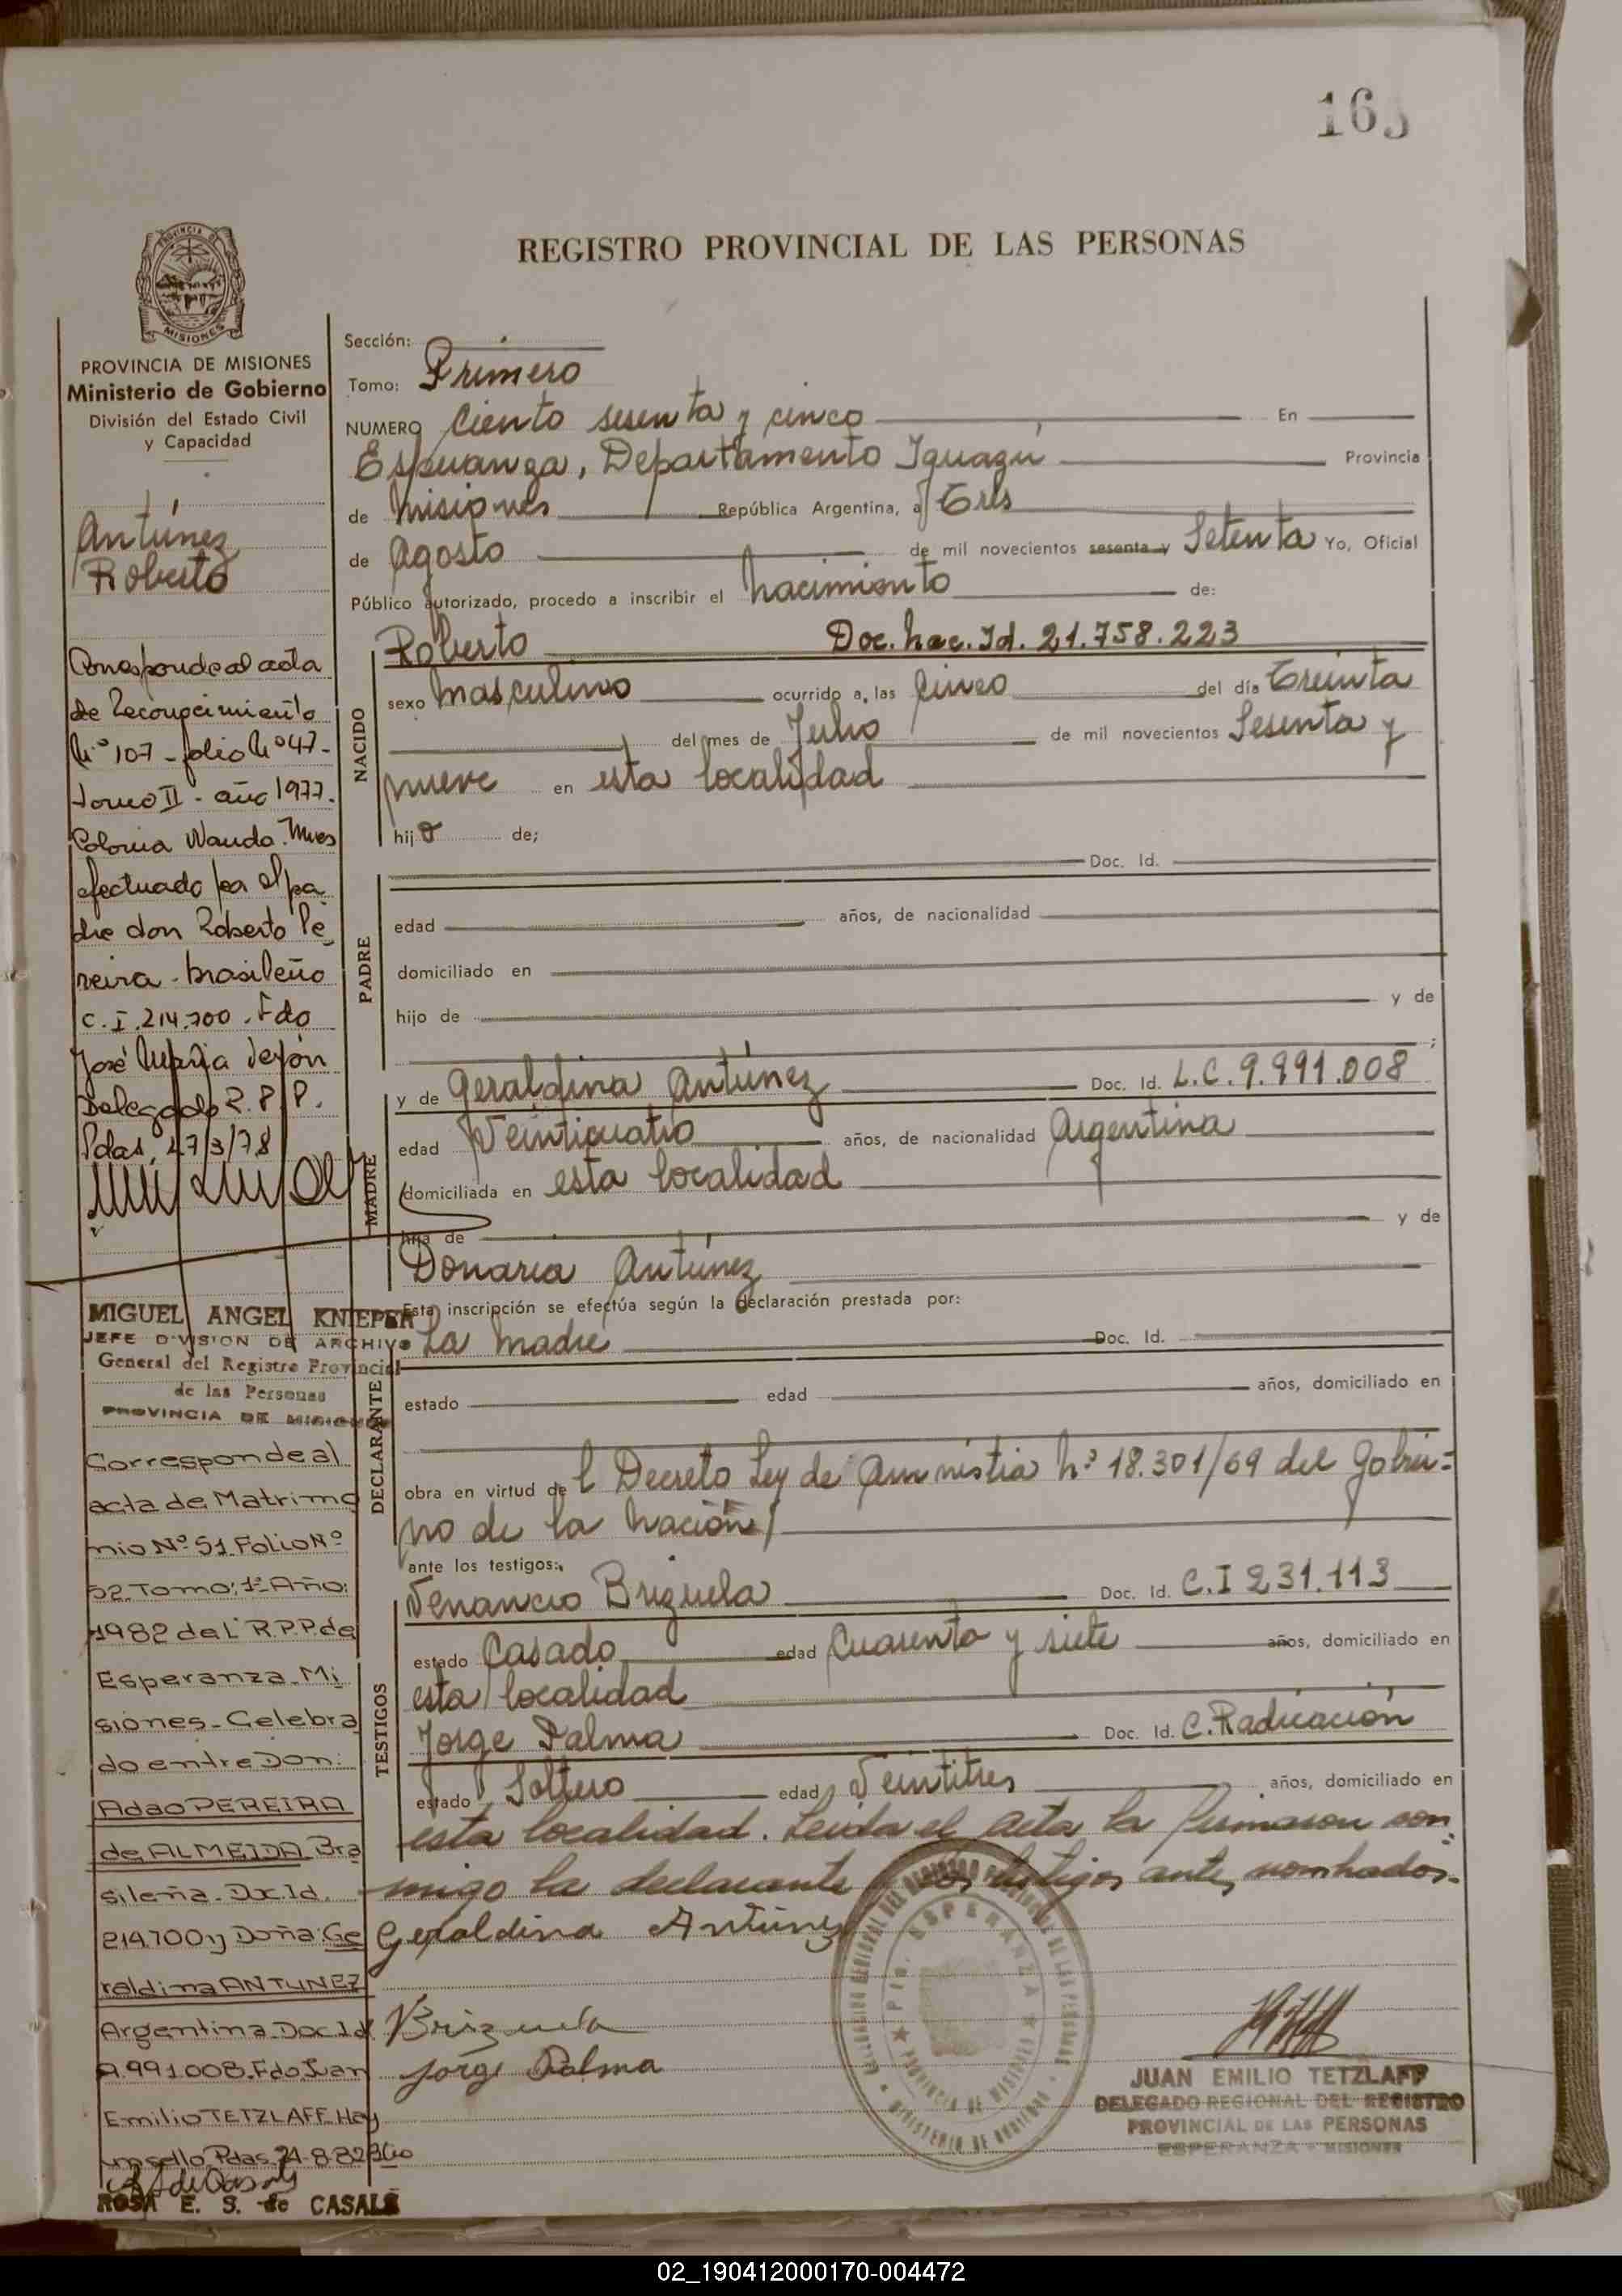 165
REGISTRO PROVINCIAL DE LAS PERSONAS
PROVINCIA DE
MISIONES
PROVINCIA DE MISIONES
Ministerio de Gobierno
División del Estado Civil
y Capacidad
Antúnez
Roberto
Corresponde al acta
de Reconocimiento
Nº 107 - folio Nº 47-
tomo II - año 1977.
Colonia Wanda. Mnes
efectuado por el pa
dre don Roberto Pe
reira - brasileño
C.I. 214.700. Fdo
José María
Delegado R.P.P.
Pdas, 27/3/78
MIGUEL ANGEL KNIEPER
JEFE DIVISION DE ARCHIVO
General del Registro Provincial
de las Personas
PROVINCIA DE MISIONES
Corresponde al
acta de Matrimo
nio Nº 51 Folio Nº
52 Tomo: 1º Año:
1982 del R.P.P. de
Esperanza Mi
siones - Celebra
do entre Don:
Adao PEREIRA
de ALMEIDA Bra
sileña. Doc. Id.
214.700 y Doña: Ge
raldina ANTUNEZ
Argentina Doc. Id
9.991.008. Fdo. Juan
Emilio TETZLAFF. Hay
un sello. Pdas. 24-8-82
ROSA E. S. de CASALS
Sección:
Tomo: Primero
NUMERO Ciento sesenta y cinco En
Esperanza, Departamento Iguazú Provincia
de Misiones República Argentina, a Tres
de Agosto de mil novecientos sesenta y Setenta Yo, Oficial
Público autorizado, procedo a inscribir el nacimiento de:
NACIDO
Roberto Doc. Nac. Id. 21.758.223
sexo Masculino ocurrido a las Cinco del día Treinta
del mes de Julio de mil novecientos Sesenta y
nueve en esta localidad
hijo de;
PADRE
Doc. Id.
edad años, de nacionalidad
domiciliado en
hijo de y de
;
MADRE
y de Geraldina Antúnez Doc. Id. L.C. 9.991.008
edad Veinticuatro años, de nacionalidad Argentina
domiciliada en esta localidad
hija de y de
Donaria Antúnez
DECLARANTE
Esta inscripción se efectúa según la declaración prestada por:
La Madre Doc. Id.
estado edad años, domiciliado en
obra en virtud de l Decreto Ley de Amnistia Nº 18.301/69 del Gobier=
no de la Nación
ante los testigos:
TESTIGOS
Venancio Brizuela Doc. Id. C.I 231.113
estado Casado edad Cuarenta y siete años, domiciliado en
esta localidad
Jorge Palma Doc. Id. C. Radicación
estado Soltero edad Veintitres años, domiciliado en
esta localidad. Leida el acta la firmaron con
migo la declarante y los testigos antes nombrados.
Geraldina Antúnez
Brizuela
Jorge Palma
ESPERANZA
PROVINCIA DE MISIONES
JUAN EMILIO TETZLAFF
DELEGADO REGIONAL DEL REGISTRO
PROVINCIAL DE LAS PERSONAS
ESPERANZA - MISIONES
02_190412000170-004472